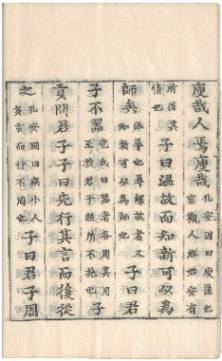 廋哉人焉廋哉孔安國曰廋匿也言觀人終始安有
所匿其情也子曰温故而知新可以爲
師矣温尋也尋繹故者又知新者可以爲師也子曰君
子不器苞氏曰器者各周其用至於君子無所不施也子
貢問君子子曰先行其言而後從
之孔安國曰疾小人多言而行不周也子曰君子周